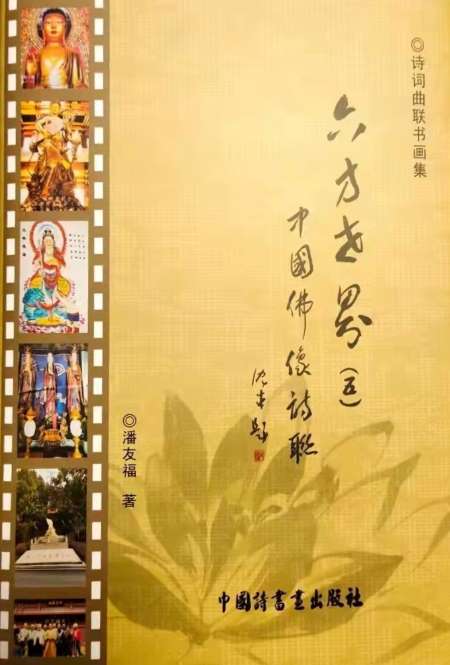 ◎诗词曲联书画集
六方世界（五）
中國佛像詩聯
◎潘友福 著
中國詩書畫出版社